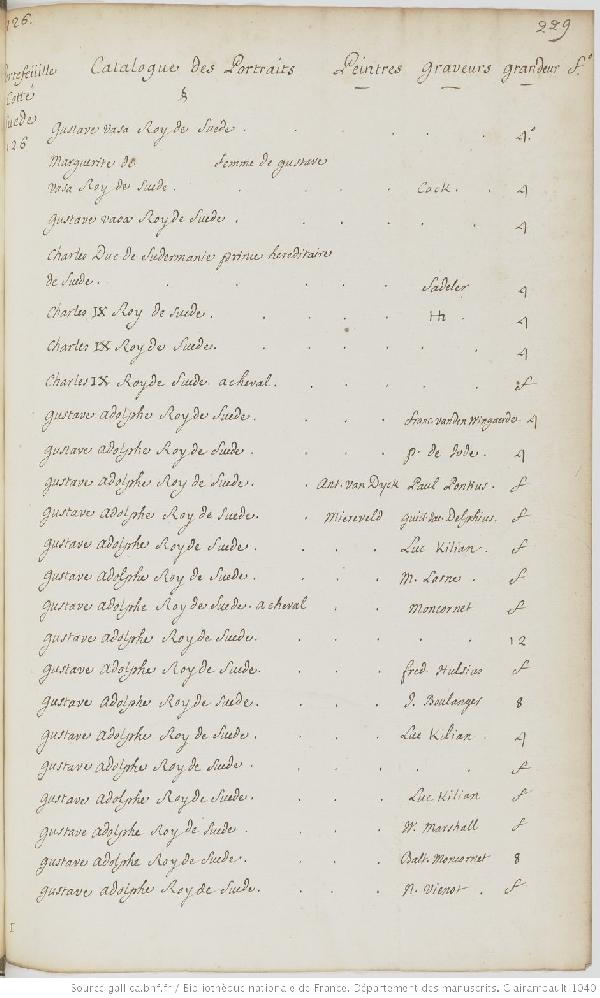 126.
229
Portefeuille Catalogue des Portraits Peintres graveurs grandeur f.º
Cotté
Suede
126
§
Gustave vasa Roy de Suede . 4.º
Marguerite de femme de gustave
vasa Roy de Suede . Cock . 4
Gustave vasa Roy de Suede . 4
Charles Duc de Sudermanie prince hereditaire
de Suede . Sadeler 4
Charles IX Roy de Suede . HH . 4
Charles IX Roy de Suede . 4
Charles IX Roy de Suede a cheval . f
gustave adolphe Roy de Suede . franc. vanden Wingaerde . 4
gustave adolphe Roy de Suede . p. de Jode . 4
gustave adolphe Roy de Suede . Ant. van Dyck Paul Pontius . f
gustave adolphe Roy de Suede . Miereveld guill. Jac. Delphius . f
gustave adolphe Roy de Suede . Luc Kilian . f
gustave adolphe Roy de Suede . M. Lasne . f
gustave adolphe Roy de Suede . a cheval Moncornet f
gustave adolphe Roy de Suede . 12
gustave adolphe Roy de Suede . fred. Hulsius f
gustave adolphe Roy de Suede . J. Boulanger 8
gustave adolphe Roy de Suede . Luc Kilian . 4
gustave adolphe Roy de Suede . f
gustave adolphe Roy de Suede . Luc Kilian f
gustave adolphe Roy de Suede . W. Marshall f
gustave adolphe Roy de Suede . Balt. Moncornet 8
gustave adolphe Roy de Suede . N. Vienot . f
I
Source gallica.bnf.fr / Bibliothèque nationale de France. Département des manuscrits. Clairambault 1040